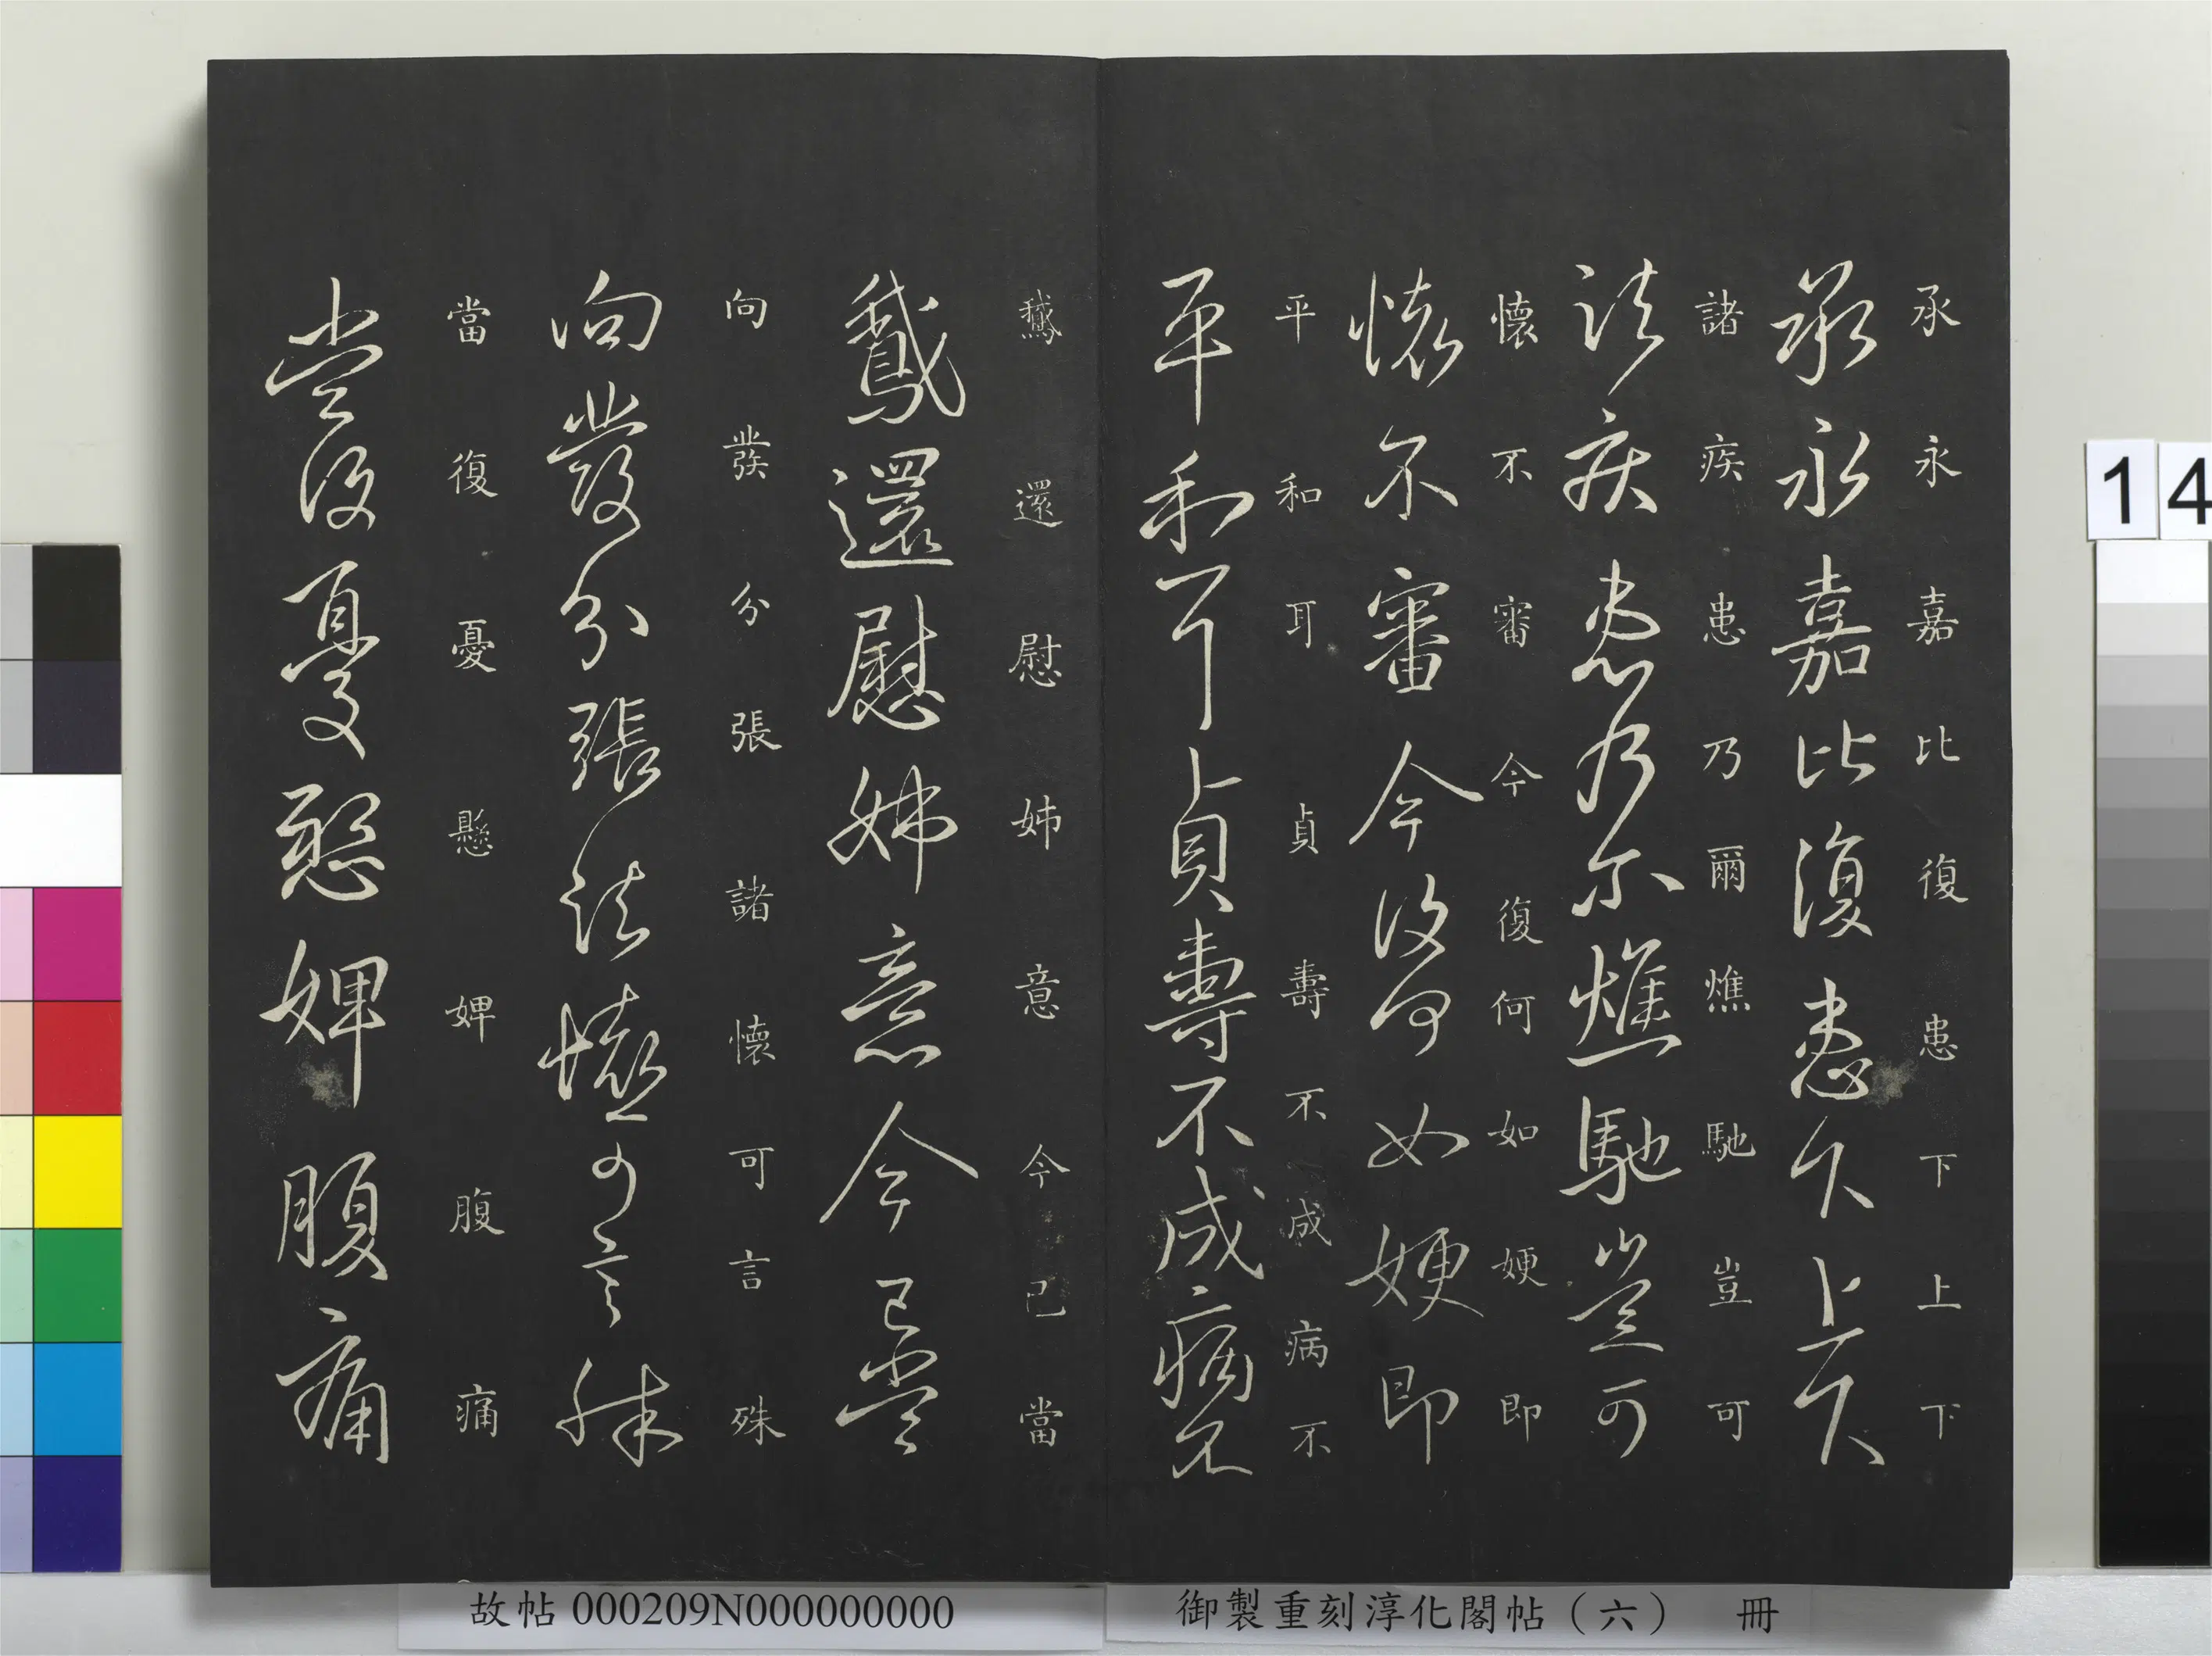 承永嘉比復患下上下
承永嘉比復患下上下
諸疾患乃爾燋馳豈可
諸疾患乃尔燋馳豈可
懷不審今復何如㛐即
懷不審今復何如㛐即
平和耳貞壽不成病不
平和耳貞壽不成病不
鵞還慰姊意今已當
鵞還慰姊意今已當
向發分張諸懷可言殊
向發分張諸懷可言殊
當復憂懸婢腹痛
當復憂懸婢腹痛
14
御製重刻淳化閣帖（六） 冊
故帖000209N000000000